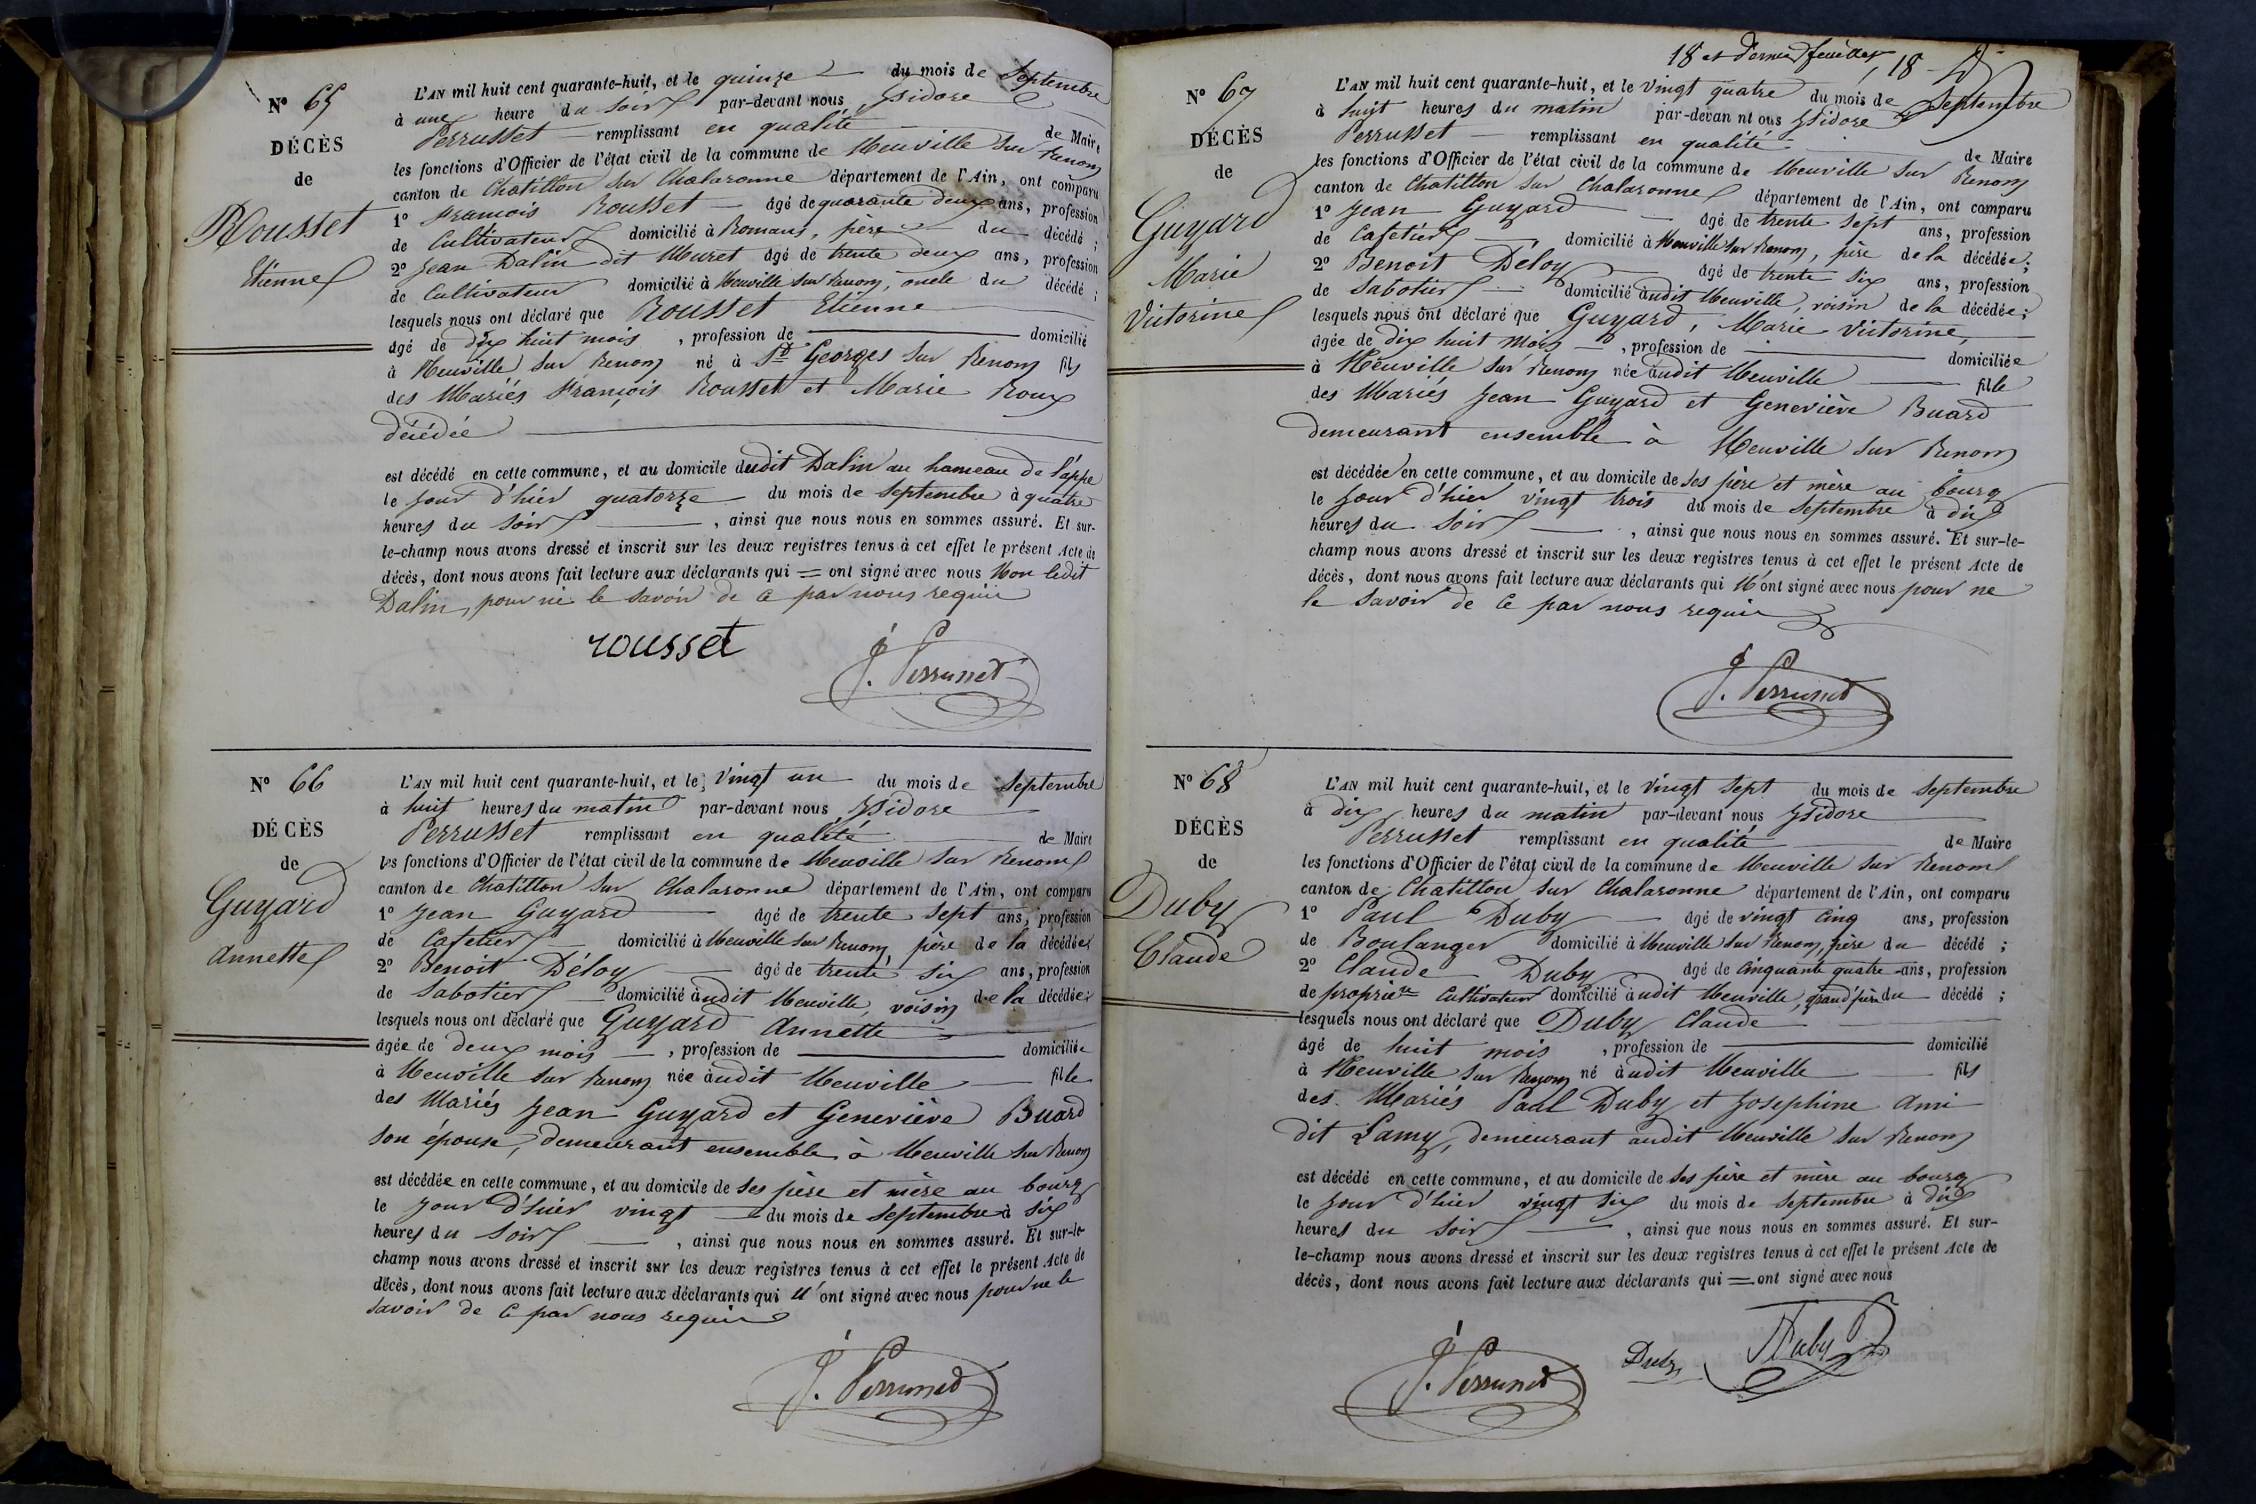 N° 65
DÉCÈS
de
Rousset
Etienne
L'AN mil huit cent quarante-huit, et le quinze du mois de Septembre
à une heure du soir par-devant nous Isidore
Perrusset remplissant en qualité de Maire
les fonctions d'Officier de l'état civil de la commune de Neuville sur Renom
canton de Chatillon sur Chalaronne département de l'Ain, ont comparu
1° François Rousset âgé de quarante deux ans, profession
de Cultivateur domicilié à Romans, père du décédé ;
2° Jean Dalin dit Muret âgé de trente deux ans, profession
de Cultivateur domicilié à Neuville sur Renom, oncle du décédé ;
lesquels nous ont déclaré que Rousset Etienne
âgé de dix huit mois , profession de domicilié
à Neuville sur Renom né à St Georges sur Renom fils
des Mariés François Rousset et Marie Roux
décédée
est décédé en cette commune, et au domicile dudit Dalin au hameau de Lappe
le jour d'hier quatorze du mois de Septembre à quatre
heures du soir , ainsi que nous nous en sommes assuré. Et sur-
le-champ nous avons dressé et inscrit sur les deux registres tenus à cet effet le présent Acte de
décès, dont nous avons fait lecture aux déclarants qui = ont signé avec nous Non ledit
Dalin, pour ne le savoir de ce par nous requis
rousset J. Perrusset
N° 66
DÉCÈS
de
Guyard
Annette
L'AN mil huit cent quarante-huit, et le Vingt un du mois de Septembre
à huit heures du matin par-devant nous Isidore
Perrusset remplissant en qualité de Maire
les fonctions d'Officier de l'état civil de la commune de Neuville sur Renom
canton de Chatillon sur Chalaronne département de l'Ain, ont comparu
1° Jean Guyard âgé de trente sept ans, profession
de Cafetier domicilié à Neuville sur Renom, père de la décédée ;
2° Benoit Déloy âgé de trente six ans, profession
de Sabotier domicilié audit Neuville, voisin de la décédée ;
lesquels nous ont déclaré que Guyard Annette
âgée de deux mois , profession de domiciliée
à Neuville sur Renom née audit Neuville fille
des Mariés Jean Guyard et Geneviève Buard
son épouse, demeurant ensemble à Neuville sur Renom
est décédée en cette commune, et au domicile de ses père et mère au bourg
le jour d'hier vingt du mois de Septembre à six
heures du soir , ainsi que nous nous en sommes assuré. Et sur-le-
champ nous avons dressé et inscrit sur les deux registres tenus à cet effet le présent Acte de
décès, dont nous avons fait lecture aux déclarants qui N'ont signé avec nous pour ne le
savoir de ce par nous requis
J. Perrusset
18 et dernier feuillet, 18
N° 67
DÉCÈS
de
Guyard
Marie
Victorine
L'AN mil huit cent quarante-huit, et le Vingt quatre du mois de Septembre
à huit heures du matin par-devan nt ous Isidore
Perrusset remplissant en qualité de Maire
les fonctions d'Officier de l'état civil de la commune de Neuville sur Renom
canton de Chatillon sur Chalaronne département de l'Ain, ont comparu
1° Jean Guyard âgé de trente sept ans, profession
de Cafetier domicilié à Neuville sur Renom, père de la décédée ;
2° Benoit Déloy âgé de trente six ans, profession
de Sabotier domicilié audit Neuville, voisin de la décédée ;
lesquels nous ont déclaré que Guyard, Marie Victorine,
âgée de dix huit mois , profession de domiciliée
à Neuville sur Renom née audit Neuville fille
des Mariés Jean Guyard et Geneviève Buard
demeurant ensemble à Neuville sur Renom
est décédée en cette commune, et au domicile de ses père et mère au bourg
le jour d'hier vingt trois du mois de Septembre à dix
heures du soir , ainsi que nous nous en sommes assuré. Et sur-le-
champ nous avons dressé et inscrit sur les deux registres tenus à cet effet le présent Acte de
décès, dont nous avons fait lecture aux déclarants qui N'ont signé avec nous pour ne
le savoir de ce par nous requis
J. Perrusset
N° 68
DÉCÈS
de
Duby
Claude
L'AN mil huit cent quarante-huit, et le Vingt sept du mois de Septembre
à dix heures du matin par-devant nous Isidore
Perrusset remplissant en qualité de Maire
les fonctions d'Officier de l'état civil de la commune de Neuville sur Renom
canton de Chatillon sur Chalaronne département de l'Ain, ont comparu
1° Paul Duby âgé de vingt cinq ans, profession
de Boulanger domicilié à Neuville sur Renom, père du décédé ;
2° Claude Duby âgé de cinquante quatre ans, profession
de proprire Cultivateur domicilié audit Neuville, grand'père du décédé ;
lesquels nous ont déclaré que Duby Claude
âgé de huit mois , profession de domicilié
à Neuville sur Renom né audit Neuville fils
des Mariés Paul Duby et Josephine Ami
dit Lamy, demeurant audit Neuville sur Renom
est décédé en cette commune, et au domicile de ses père et mère au bourg
le jour d'hier vingt six du mois de Septembre à dix
heures du soir , ainsi que nous nous en sommes assuré. Et sur-
le-champ nous avons dressé et inscrit sur les deux registres tenus à cet effet le présent Acte de
décès, dont nous avons fait lecture aux déclarants qui = ont signé avec nous
J. Perrusset Duby Duby